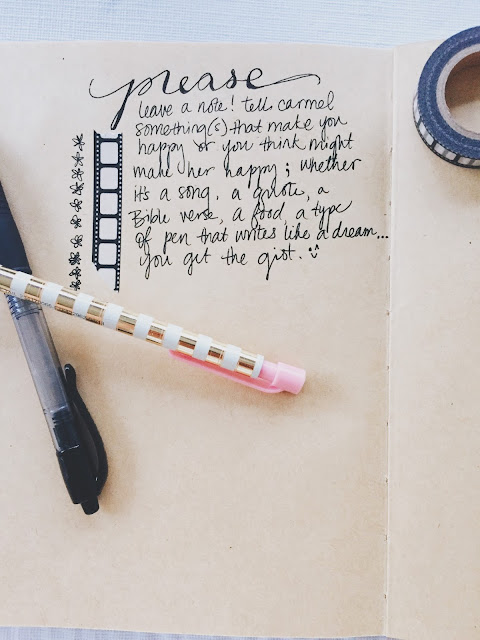 please
leave a note! tell carmel
something(s) that make you
happy or you think might
make her happy; whether
it's a song, a quote, a
Bible verse, a food, a type
of pen that writes like a dream...
you get the gist.